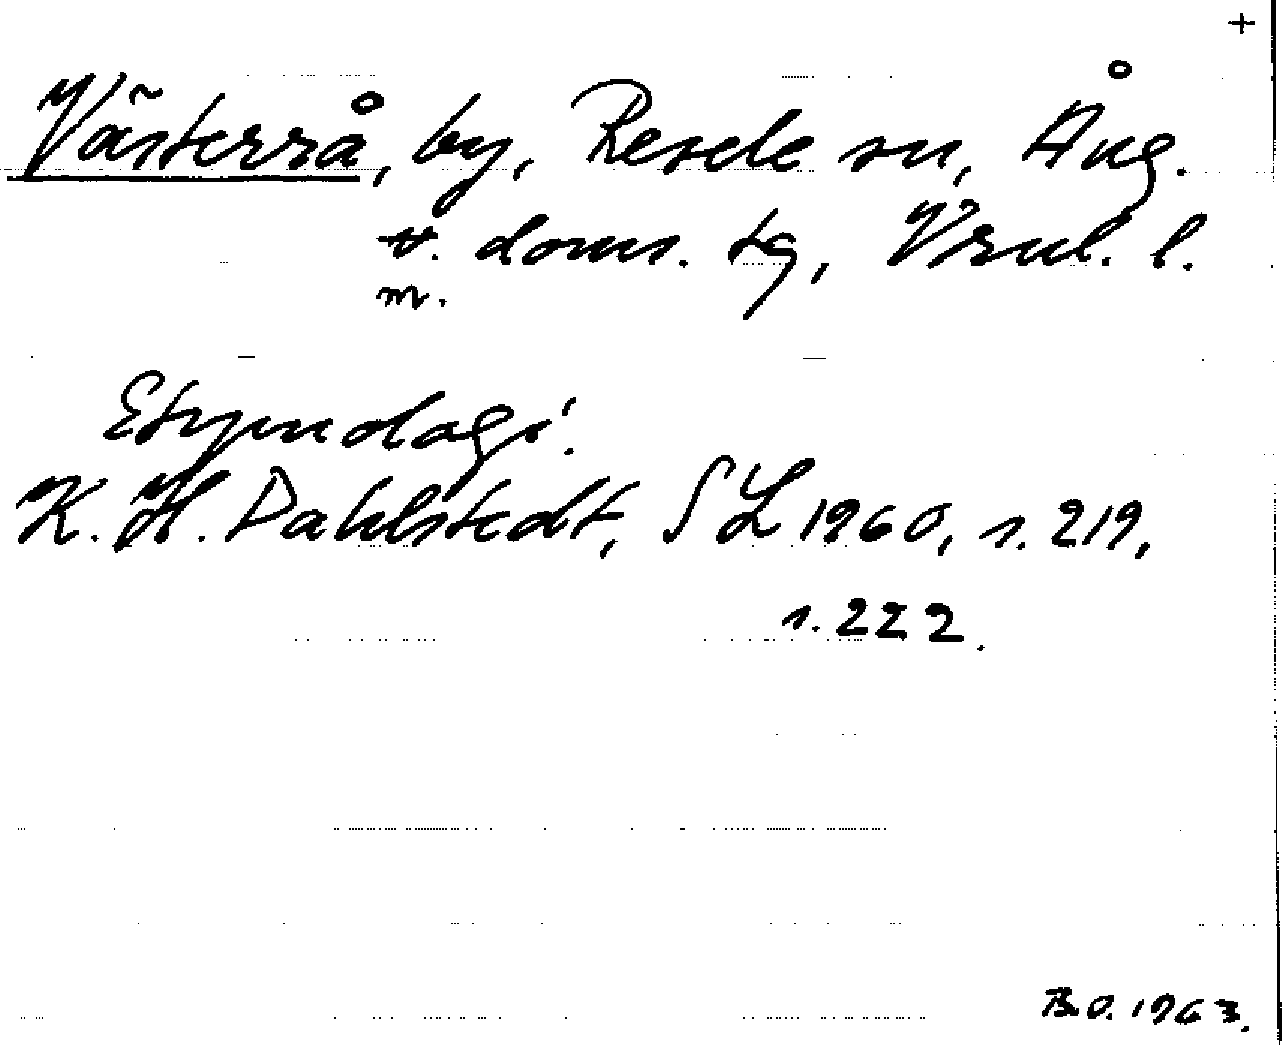 +
Västerrå, by, Resele sn, Ång.
v. doms. tg, Vrnl. l.
m.
Etymologi.
K. H. Dahlstedt, SL 1960, s. 219,
s. 222.
B.O. 1963.